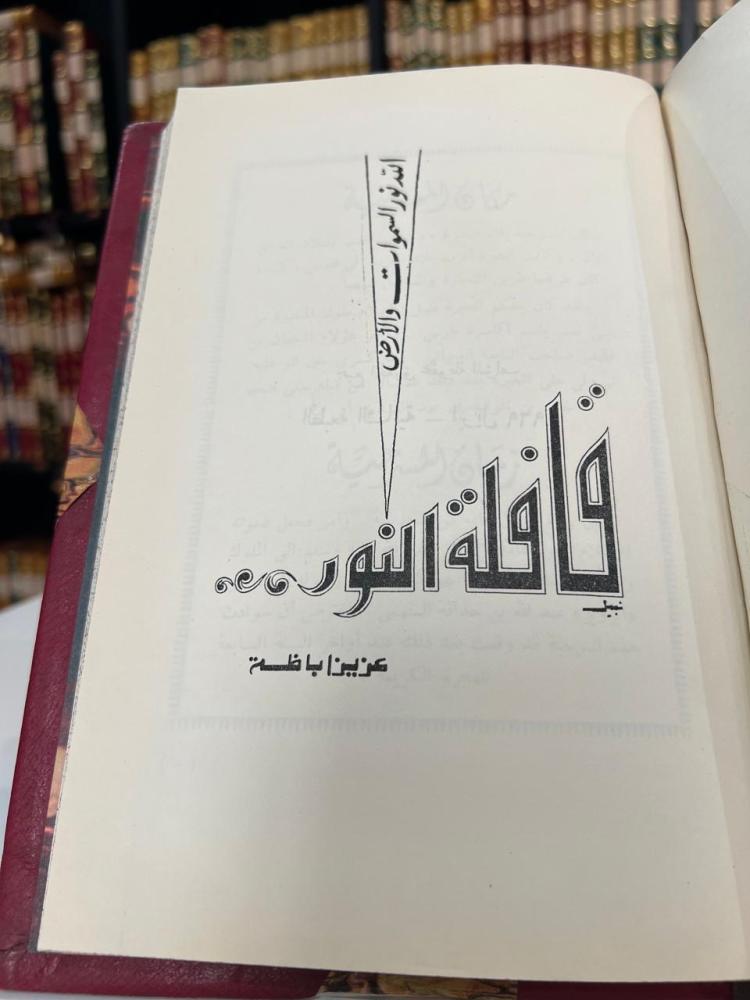 الله نور السموات والأرض
قافلة النور
نبيل
عزيز اباظة